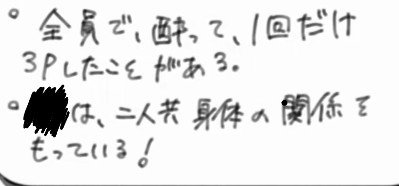 。全員で、酔って、1回だけ
3Pしたことがある。
。は、二人共身体の関係を
もっている!